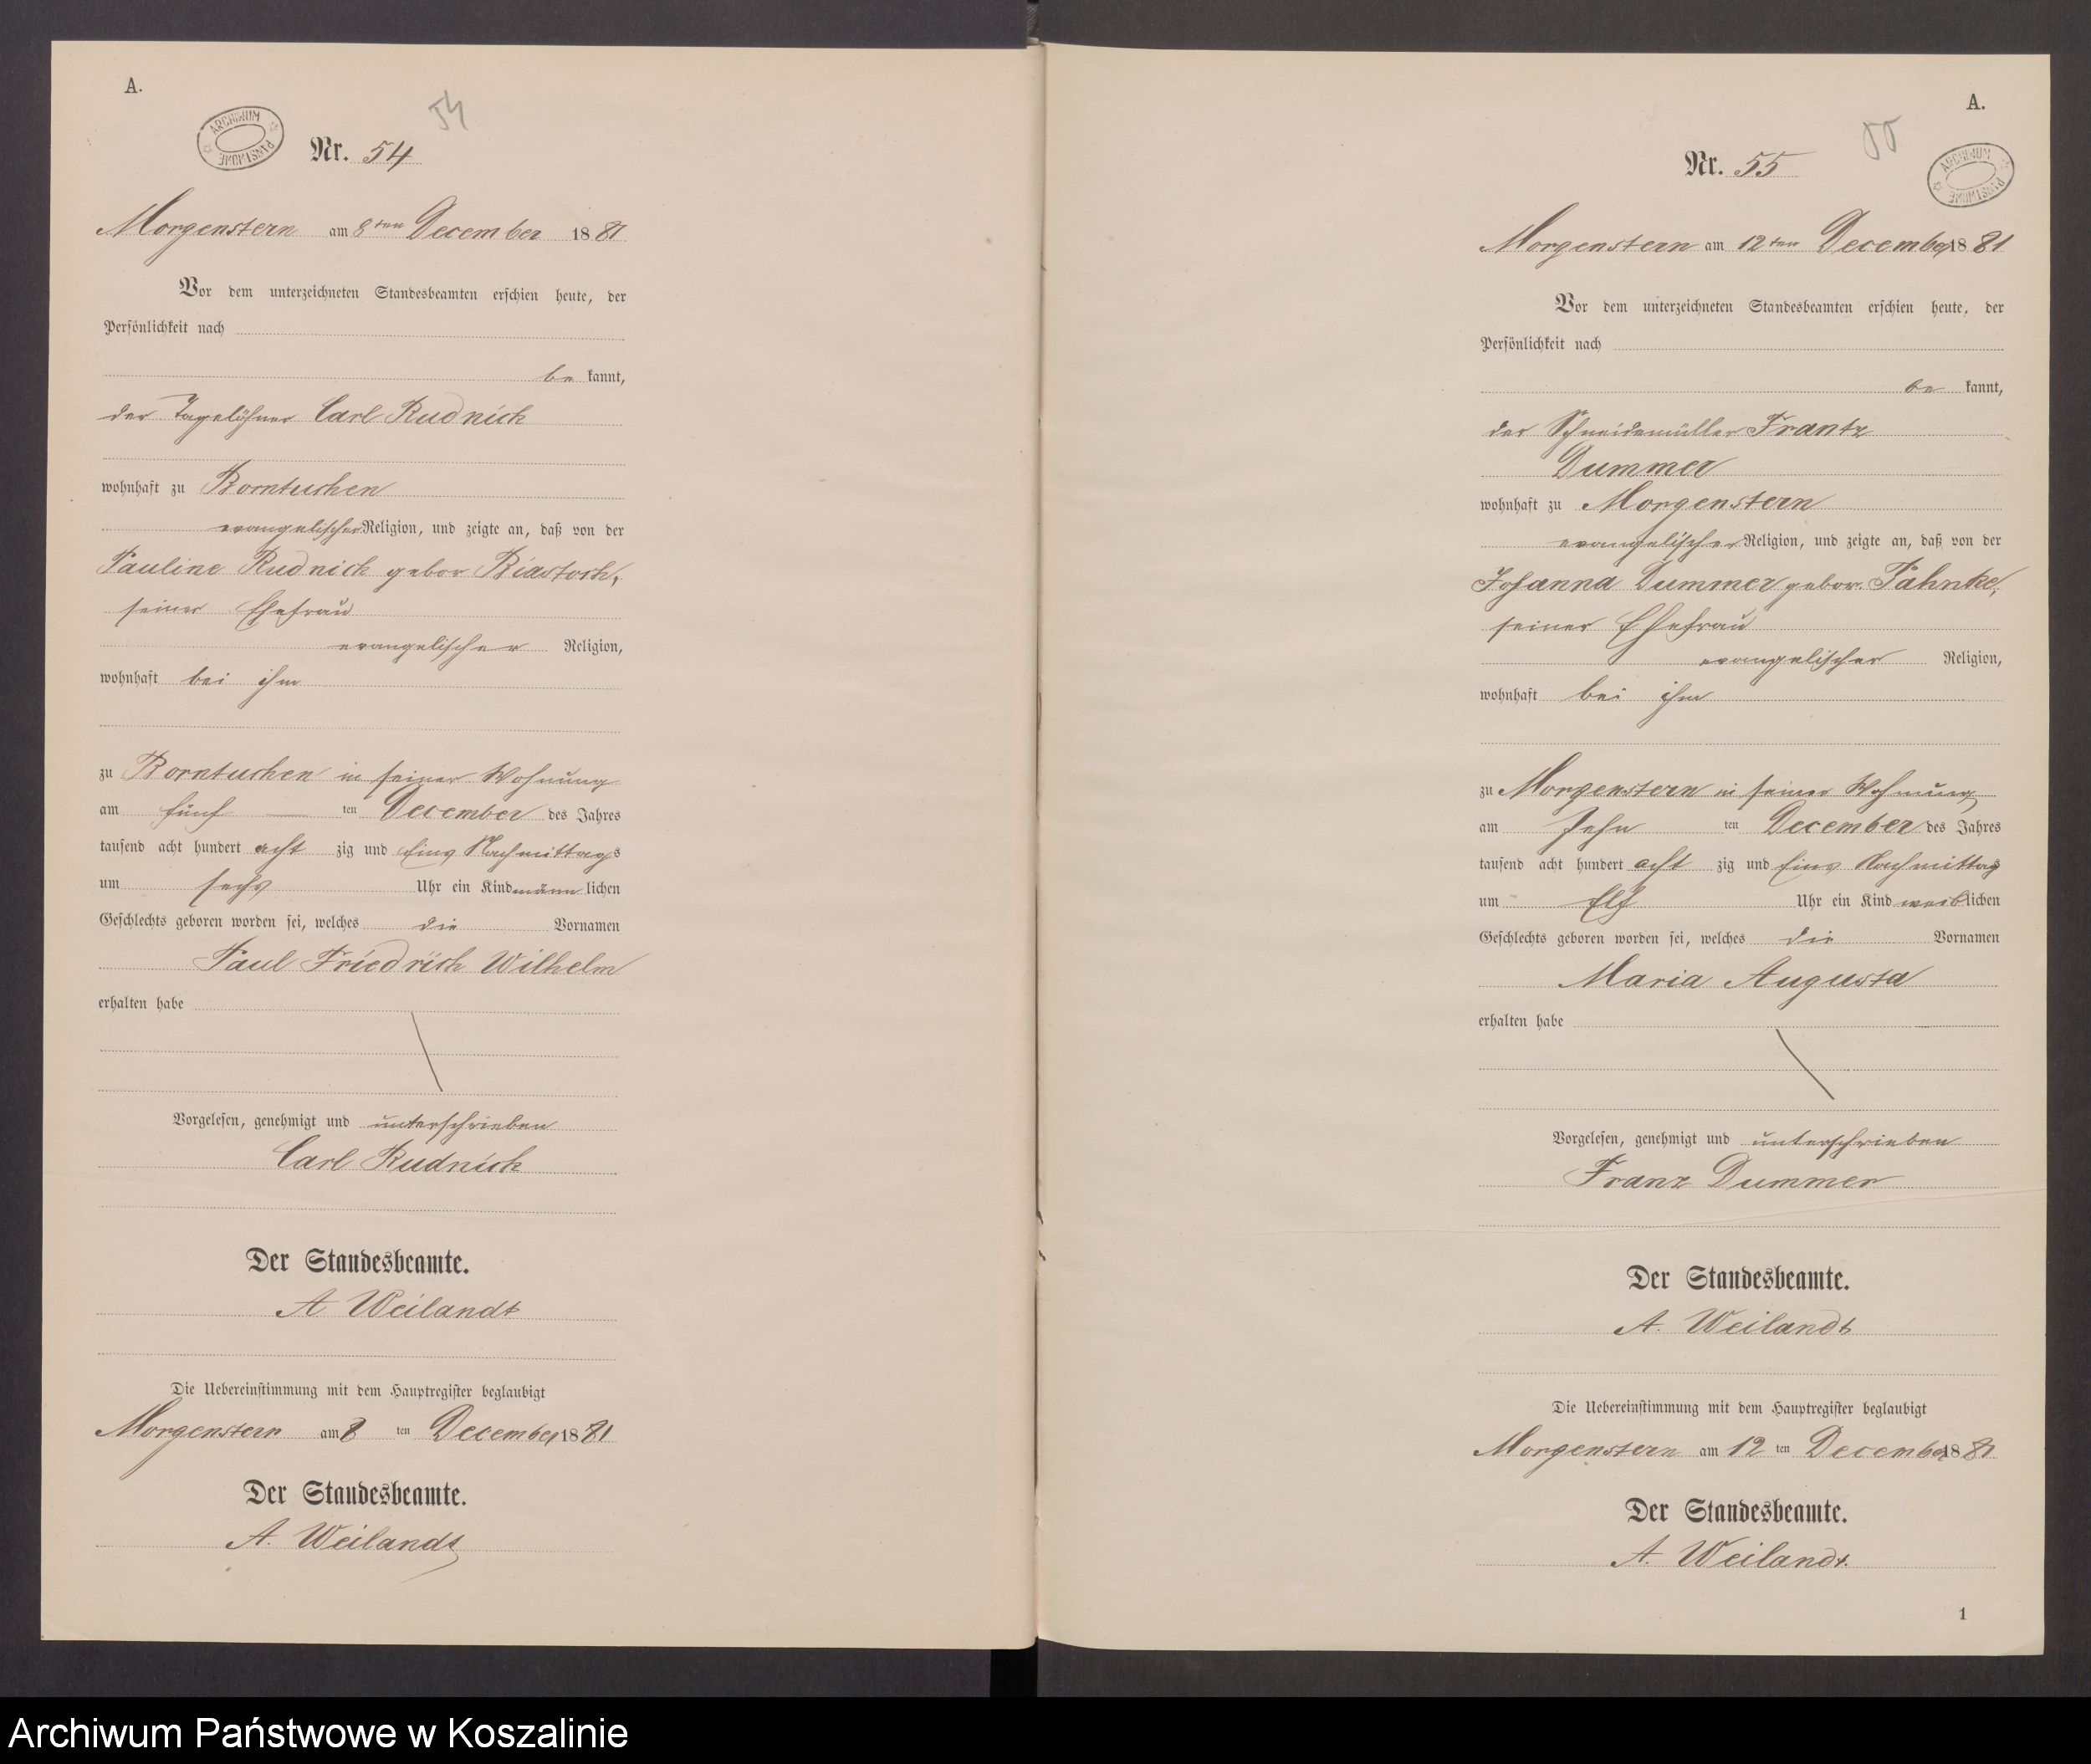 A.
54
ARCHIWUM PAŃSTWOWE
Nr. 54
Morgenstern am 8ten December 1881
Vor dem unterzeichneten Standesbeamten erschien heute, der
Persönlichkeit nach
be kannt,
der Tagelöhner Carl Rudnick
wohnhaft zu Borntuchen
evangelischer Religion, und zeigte an, daß von der
Pauline Rudnick gebor Biastock,
seiner Ehefrau
evangelischer Religion,
wohnhaft bei ihm
zu Borntuchen in seiner Wohnung
am fünf ten December des Jahres
tausend acht hundert acht zig und Eins Nachmittags
um sechs Uhr ein Kind männ lichen
Geschlechts geboren worden sei, welches die Vornamen
Paul Friedrich Wilhelm
erhalten habe
Vorgelesen, genehmigt und unterschrieben
Carl Rudnick
Der Standesbeamte.
A Weilandt
Die Uebereinstimmung mit dem Hauptregister beglaubigt
Morgenstern am 8 ten December 1881
Der Standesbeamte.
A. Weilandt
A.
55
ARCHIWUM PAŃSTWOWE
Nr. 55
Morgenstern am 12ten December 1881
Vor dem unterzeichneten Standesbeamten erschien heute, der
Persönlichkeit nach
be kannt,
der Schneidemüller Frantz
Dummer
wohnhaft zu Morgenstern
evangelischer Religion, und zeigte an, daß von der
Johanna Dummer gebor. Pähnke,
seiner Ehefrau
evangelischer Religion,
wohnhaft bei ihm
zu Morgenstern in seiner Wohnung
am Zehn ten December des Jahres
tausend acht hundert acht zig und Eins Nachmittag
um Elf Uhr ein Kind weiblichen
Geschlechts geboren worden sei, welches die Vornamen
Maria Augusta
erhalten habe
Vorgelesen, genehmigt und unterschrieben
Franz Dummer
Der Standesbeamte.
A. Weilandt
Die Uebereinstimmung mit dem Hauptregister beglaubigt
Morgenstern am 12 ten December 1881
Der Standesbeamte.
A. Weilandt.
1
Archiwum Państwowe w Koszalinie